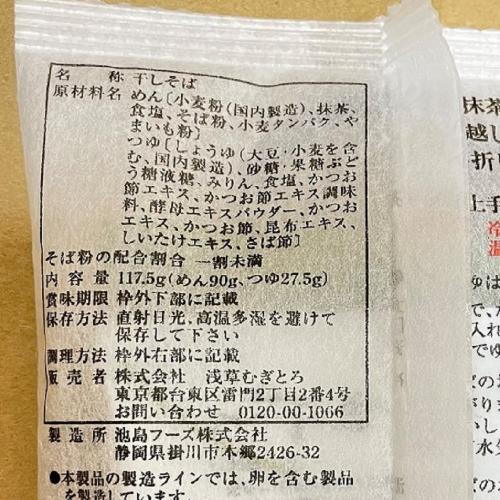 名称 干しそば
原材料名 めん〔小麦粉(国内製造)、抹茶、
食塩、そば粉、小麦タンパク、や
まいも粉〕
つゆ〔しょうゆ(大豆・小麦を含
む、国内製造)、砂糖・果糖ぶど
う糖液糖、みりん、食塩、かつお
節エキス、かつお節エキス調味
料、酵母エキスパウダー、かつお
エキス、かつお節、昆布エキス、
しいたけエキス、さば節〕
そば粉の配合割合 一割未満
内容量 117.5g(めん90g、つゆ27.5g)
賞味期限 枠外下部に記載
保存方法 直射日光、高温多湿を避けて
保存して下さい
調理方法 枠外右部に記載
販売者 株式会社 浅草むぎとろ
東京都台東区雷門2丁目2番4号
お問い合わせ 0120-00-1066
製造所 池島フーズ株式会社
静岡県掛川市本郷2426-32
●本製品の製造ラインでは、卵を含む製品
を製造しています。
抹茶
越し
折り
上手
冷
温